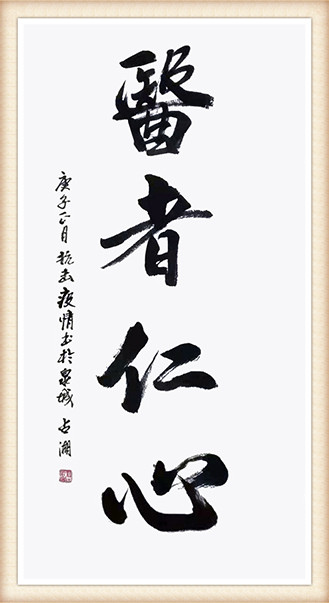 醫者仁心
庚子正月抗击疫情书於泉城 占澜